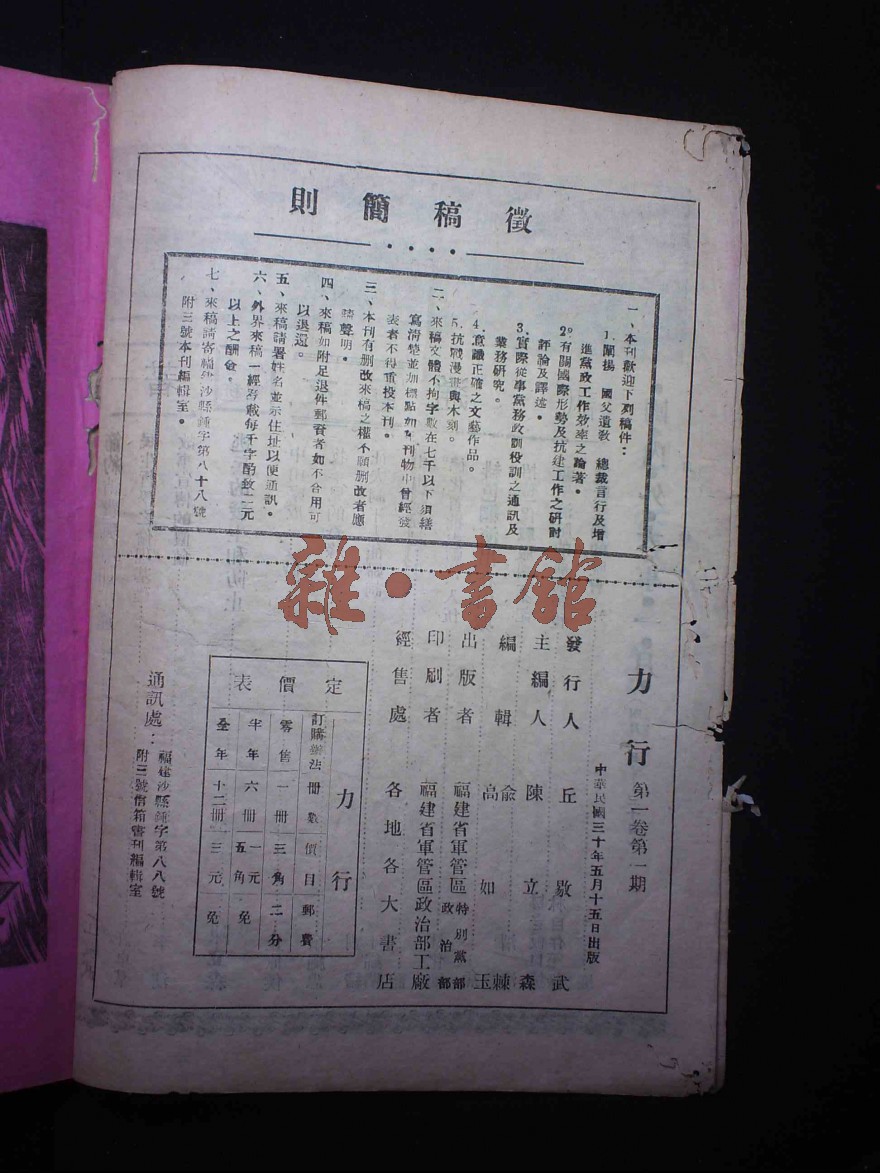 徵稿簡則
一、本刊歡迎下列稿件：
1.闡揚　國父遺敎　總裁言行及增
進黨政工作效率之論著。
2.有關國際形勢及抗建工作之研討
評論及譯述。
3.實際從事黨務政訓役訓之通訊及
業務研究。
4.意識正確之文藝作品。
5.抗戰漫畫與木刻。
二、來稿文體不拘字數在七千以下須繕
寫淸楚並加標點如在刊物中曾經發
表者不得重投本刊。
三、本刊有删改來稿之權不願删改者應
請聲明。
四、來稿如附足退件郵資者如不合用可
以退還。
五、來稿請署姓名並示住址以便通訊。
六、外界來稿一經登載每千字酌致二元
以上之酬金。
七、來稿請寄福建沙縣鍾字第八十八號
附三號本刊編輯室。
雜·書館
力行　第一卷第一期
中華民國三十年五月十五日出版
發行人　丘　敭　武
主編人　陳　立　森
編輯　俞　棘
高　如　玉
出版者　福建省軍管區特別黨部
政治部
印刷者　福建省軍管區政治部工廠
經售處　各地各大書店
定價表
力行
訂購辦法　冊數　價目　郵費
零售　一冊　三角　二分
半年　六冊　一元五角　免
全年　十二冊　三元　免
通訊處：福建沙縣鍾字第八八號
附三號信箱書刊編輯室